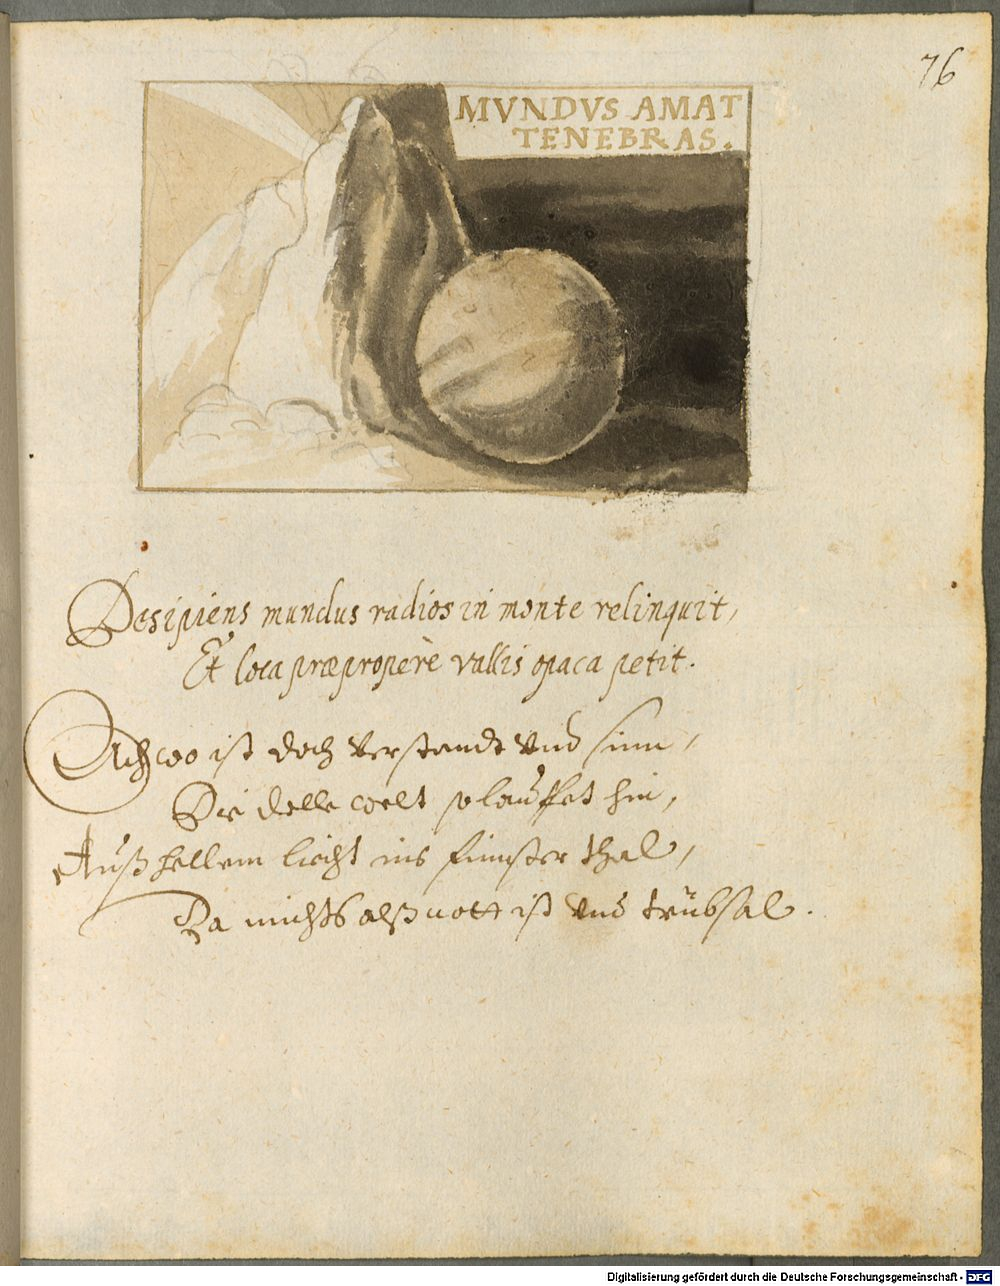 76
MVNDVS AMAT
TENEBRAS.
Desipiens mundus radios in monte relinquit,
Et loca præproperè vallis opaca petit.
Ach wo ist doch verstandt vnd sinn,
Die dolle welt so lauffet hin,
Auß hellem liecht ins finster thal,
Da nichts alß nott ist vnd trübsal.
Digitalisierung gefördert durch die Deutsche Forschungsgemeinschaft - DFG